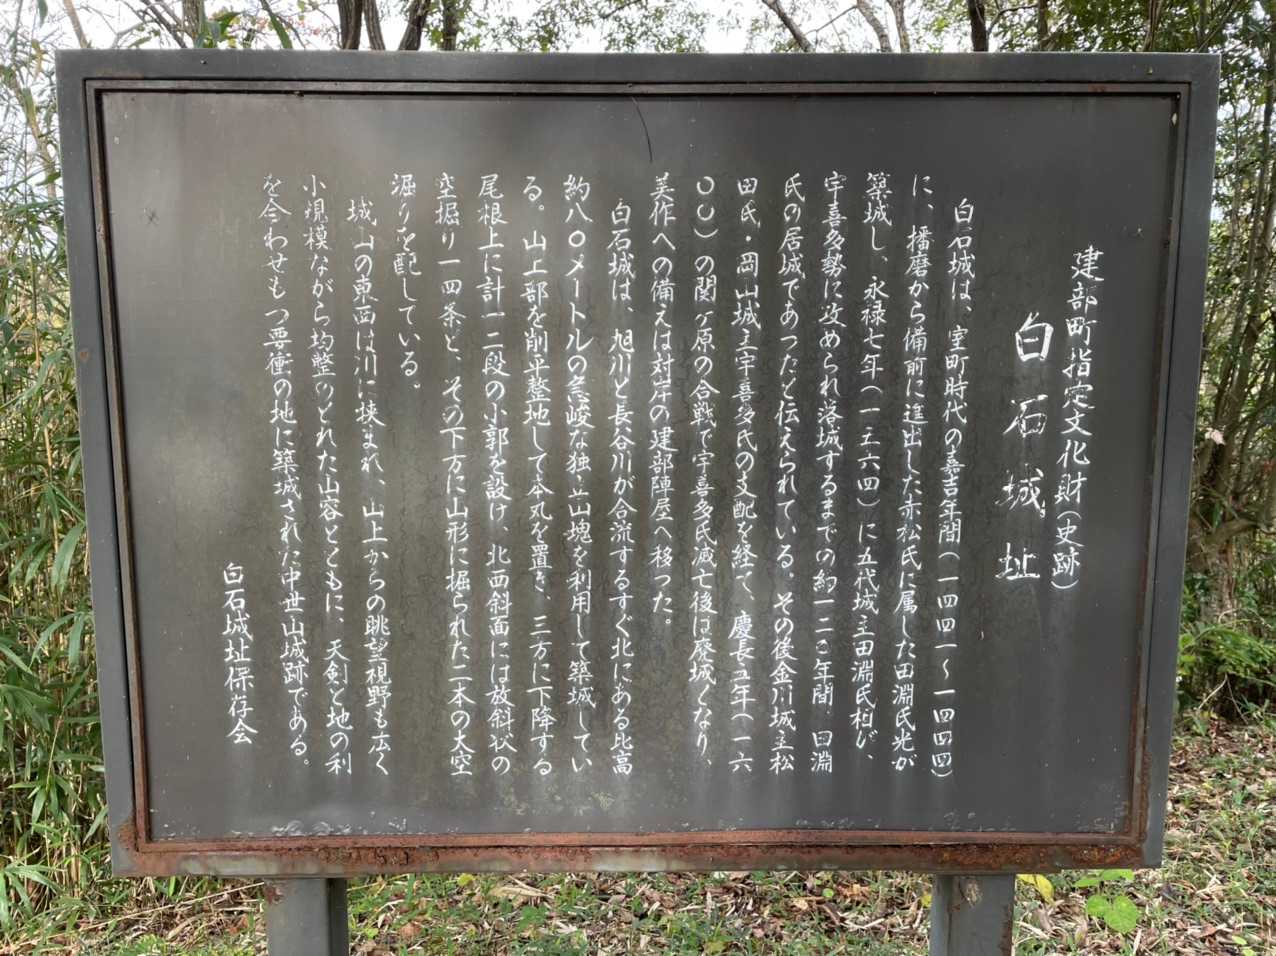 建部町指定文化財(史跡)
白石城址
白石城は、室町時代の嘉吉年間(一四四一〜一四四四)
に、播磨から備前に進出した赤松氏に属した田淵氏光が
築城し、永禄七年(一五六四)に五代城主田淵氏柏が、
宇喜多勢に攻められ落城するまでの約一二〇年間田淵
氏の居城であったと伝えられている。その後金川城主松
田氏・岡山城主宇喜多氏の支配を経て、慶長五年(一六
〇〇)の関ヶ原の合戦で宇喜多氏滅亡後には廃城となり、
美作への備えは対岸の建部陣屋へ移った。
白石城は、旭川と長谷川が合流するすぐ北にある比高
約八〇メートルの急峻な独立山塊を利用して築城してい
る。山上部を削平整地して本丸を置き、三方に下降する
尾根上に計一二段の小郭を設け、北西斜面には放斜状の
空堀り一四条と、その下方に山形に掘られた二本の大空
堀りを配している。
城山の東西は川に挟まれ、山上からの眺望視野も広く
小規模ながら均整のとれた山容とともに、天剣と地の利
を合わせもつ要衝の地に築城された中世山城跡である。
白石城址保存会